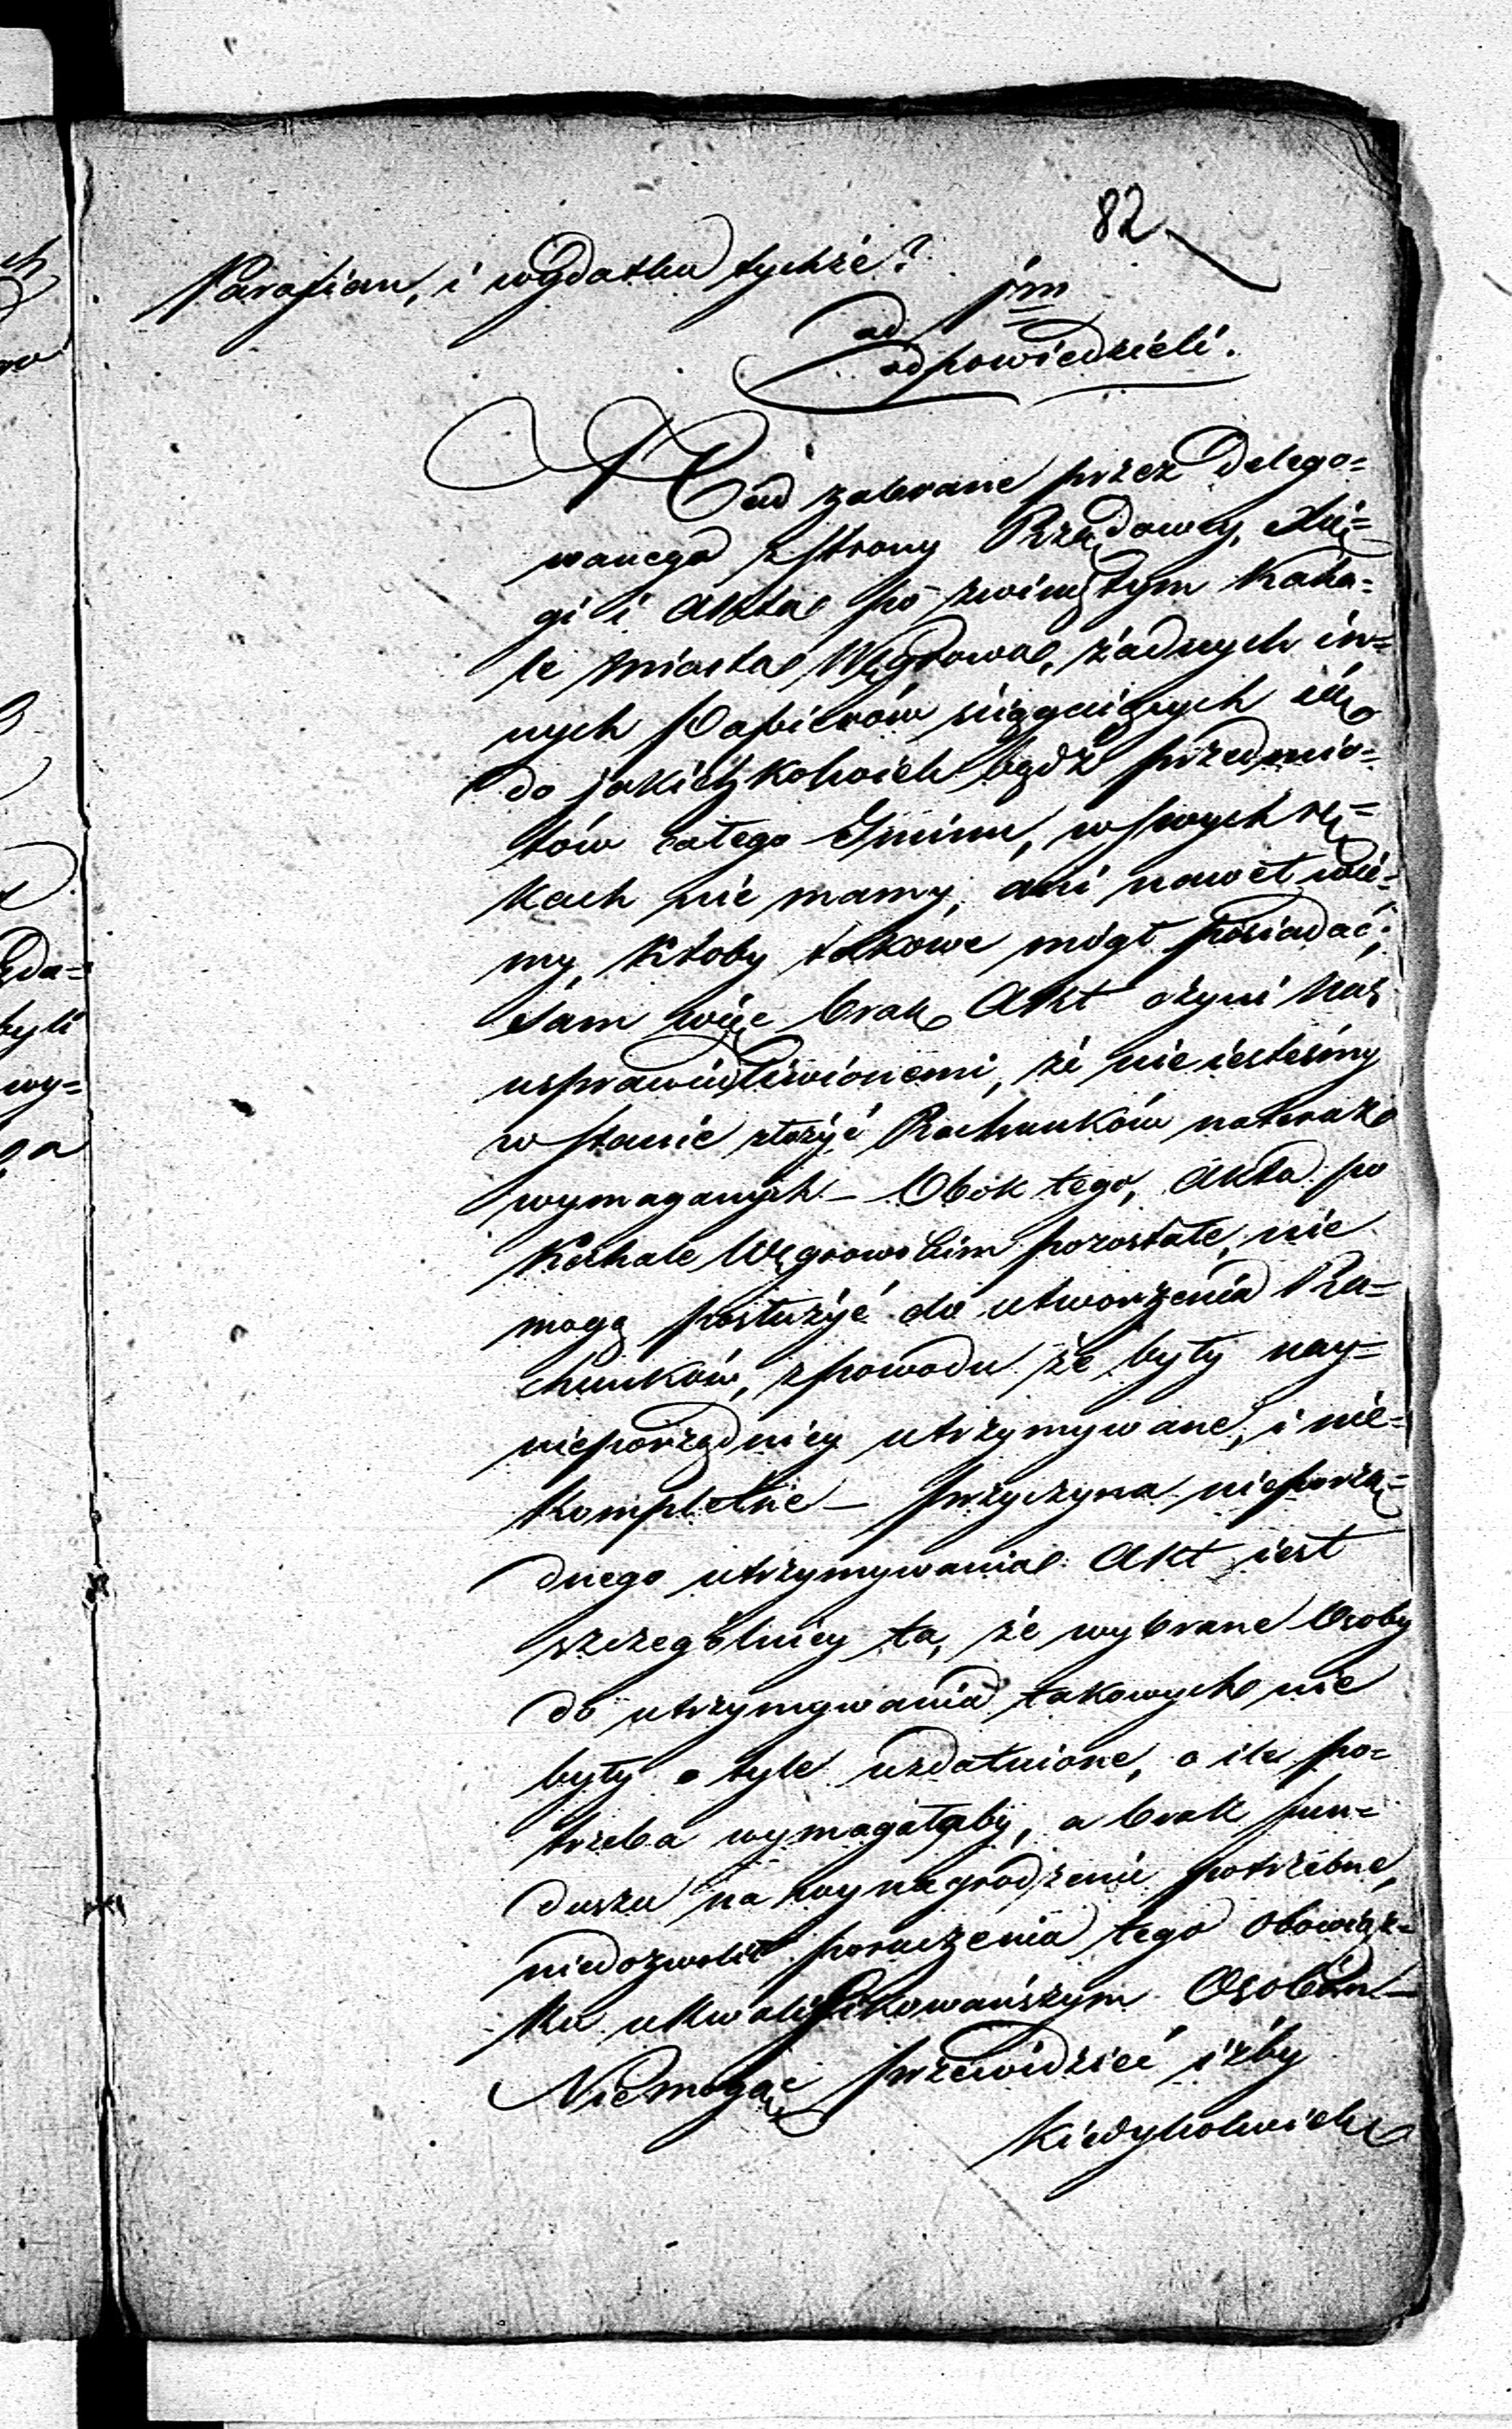 82
Parafian, i wydatku tychże?
ad 1m
odpowiedzieli.
Nad zabrane przez Delego=
wanego z strony Rządowey, Xię=
gi i Akta po zwiniętym Kaha=
le Miasta Węgrowa, żadnych in=
nych Papierów sciągaiących się
do jakichkolwiek bądź przedmio=
tów całego Gminu, w swych rę=
kach nie mamy, ani nawet wie=
my, Ktoby takowe mógł posiadać;
Sam więc brak Akt czyni Nas
usprawiedliwionemi, że nie iesteśmy
w stanie złożyć Rachunków na teraz
wymaganych – Obok tego, Akta po
Kahale Węgrowskim pozostałe, nie
mogą posłużyć do utworzenia Ra=
chunków, z powodu że były nay=
nieporządniey utrzymywane, i nie=
kompletne – przyczyna nieporzą=
dnego utrzymywania Akt iest
szczególniey ta, że wybrane Osoby
do utrzymywania takowych nie
były o tyle uzdatnione, o ile po=
trzeba wymagałaby, a brak fun=
duszu na wynagrodzenie potrzebne,
niedozwolił poruczenia tego obowiąz=
ku ukwalifikowańszym Osobom –
Niemogąc przewidzieć iżby
kiedykolwiek
ch
ro
zda=
byli
wy=